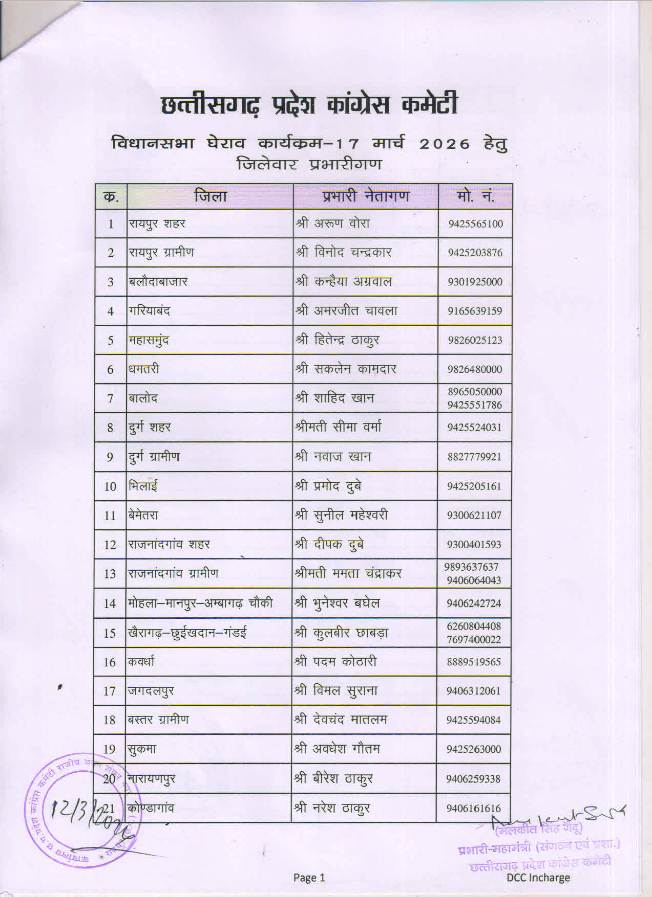 छत्तीसगढ़ प्रदेश कांग्रेस कमेटी
विधानसभा घेराव कार्यक्रम–17 मार्च 2026 हेतु
जिलेवार प्रभारीगण
क. जिला प्रभारी नेतागण मो. नं.
1 रायपुर शहर श्री अरूण वोरा 9425565100
2 रायपुर ग्रामीण श्री विनोद चन्द्रकार 9425203876
3 बलौदाबाजार श्री कन्हैया अग्रवाल 9301925000
4 गरियाबंद श्री अमरजीत चावला 9165639159
5 महासमुंद श्री हितेन्द्र ठाकुर 9826025123
6 धमतरी श्री सकलेन कामदार 9826480000
7 बालोद श्री शाहिद खान 8965050000
9425551786
8 दुर्ग शहर श्रीमती सीमा वर्मा 9425524031
9 दुर्ग ग्रामीण श्री नवाज खान 8827779921
10 भिलाई श्री प्रमोद दुबे 9425205161
11 बेमेतरा श्री सुनील महेश्वरी 9300621107
12 राजनांदगांव शहर श्री दीपक दुबे 9300401593
13 राजनांदगांव ग्रामीण श्रीमती ममता चंद्राकर 9893637637
9406064043
14 मोहला–मानपुर–अम्बागढ़ चौकी श्री भुनेश्वर बघेल 9406242724
15 खैरागढ़–छुईखदान–गंडई श्री कुलबीर छाबड़ा 6260804408
7697400022
16 कवर्धा श्री पदम कोठारी 8889519565
17 जगदलपुर श्री विमल सुराना 9406312061
18 बस्तर ग्रामीण श्री देवचंद मातलम 9425594084
19 सुकमा श्री अवधेश गौतम 9425263000
20 नारायणपुर श्री बीरेश ठाकुर 9406259338
21 कोण्डागांव श्री नरेश ठाकुर 9406161616
12/3/2026
(मलकीत सिंह गैदू)
प्रभारी-महामंत्री (संगठन एवं प्रशा.)
छत्तीसगढ़ प्रदेश कांग्रेस कमेटी
Page 1 DCC Incharge